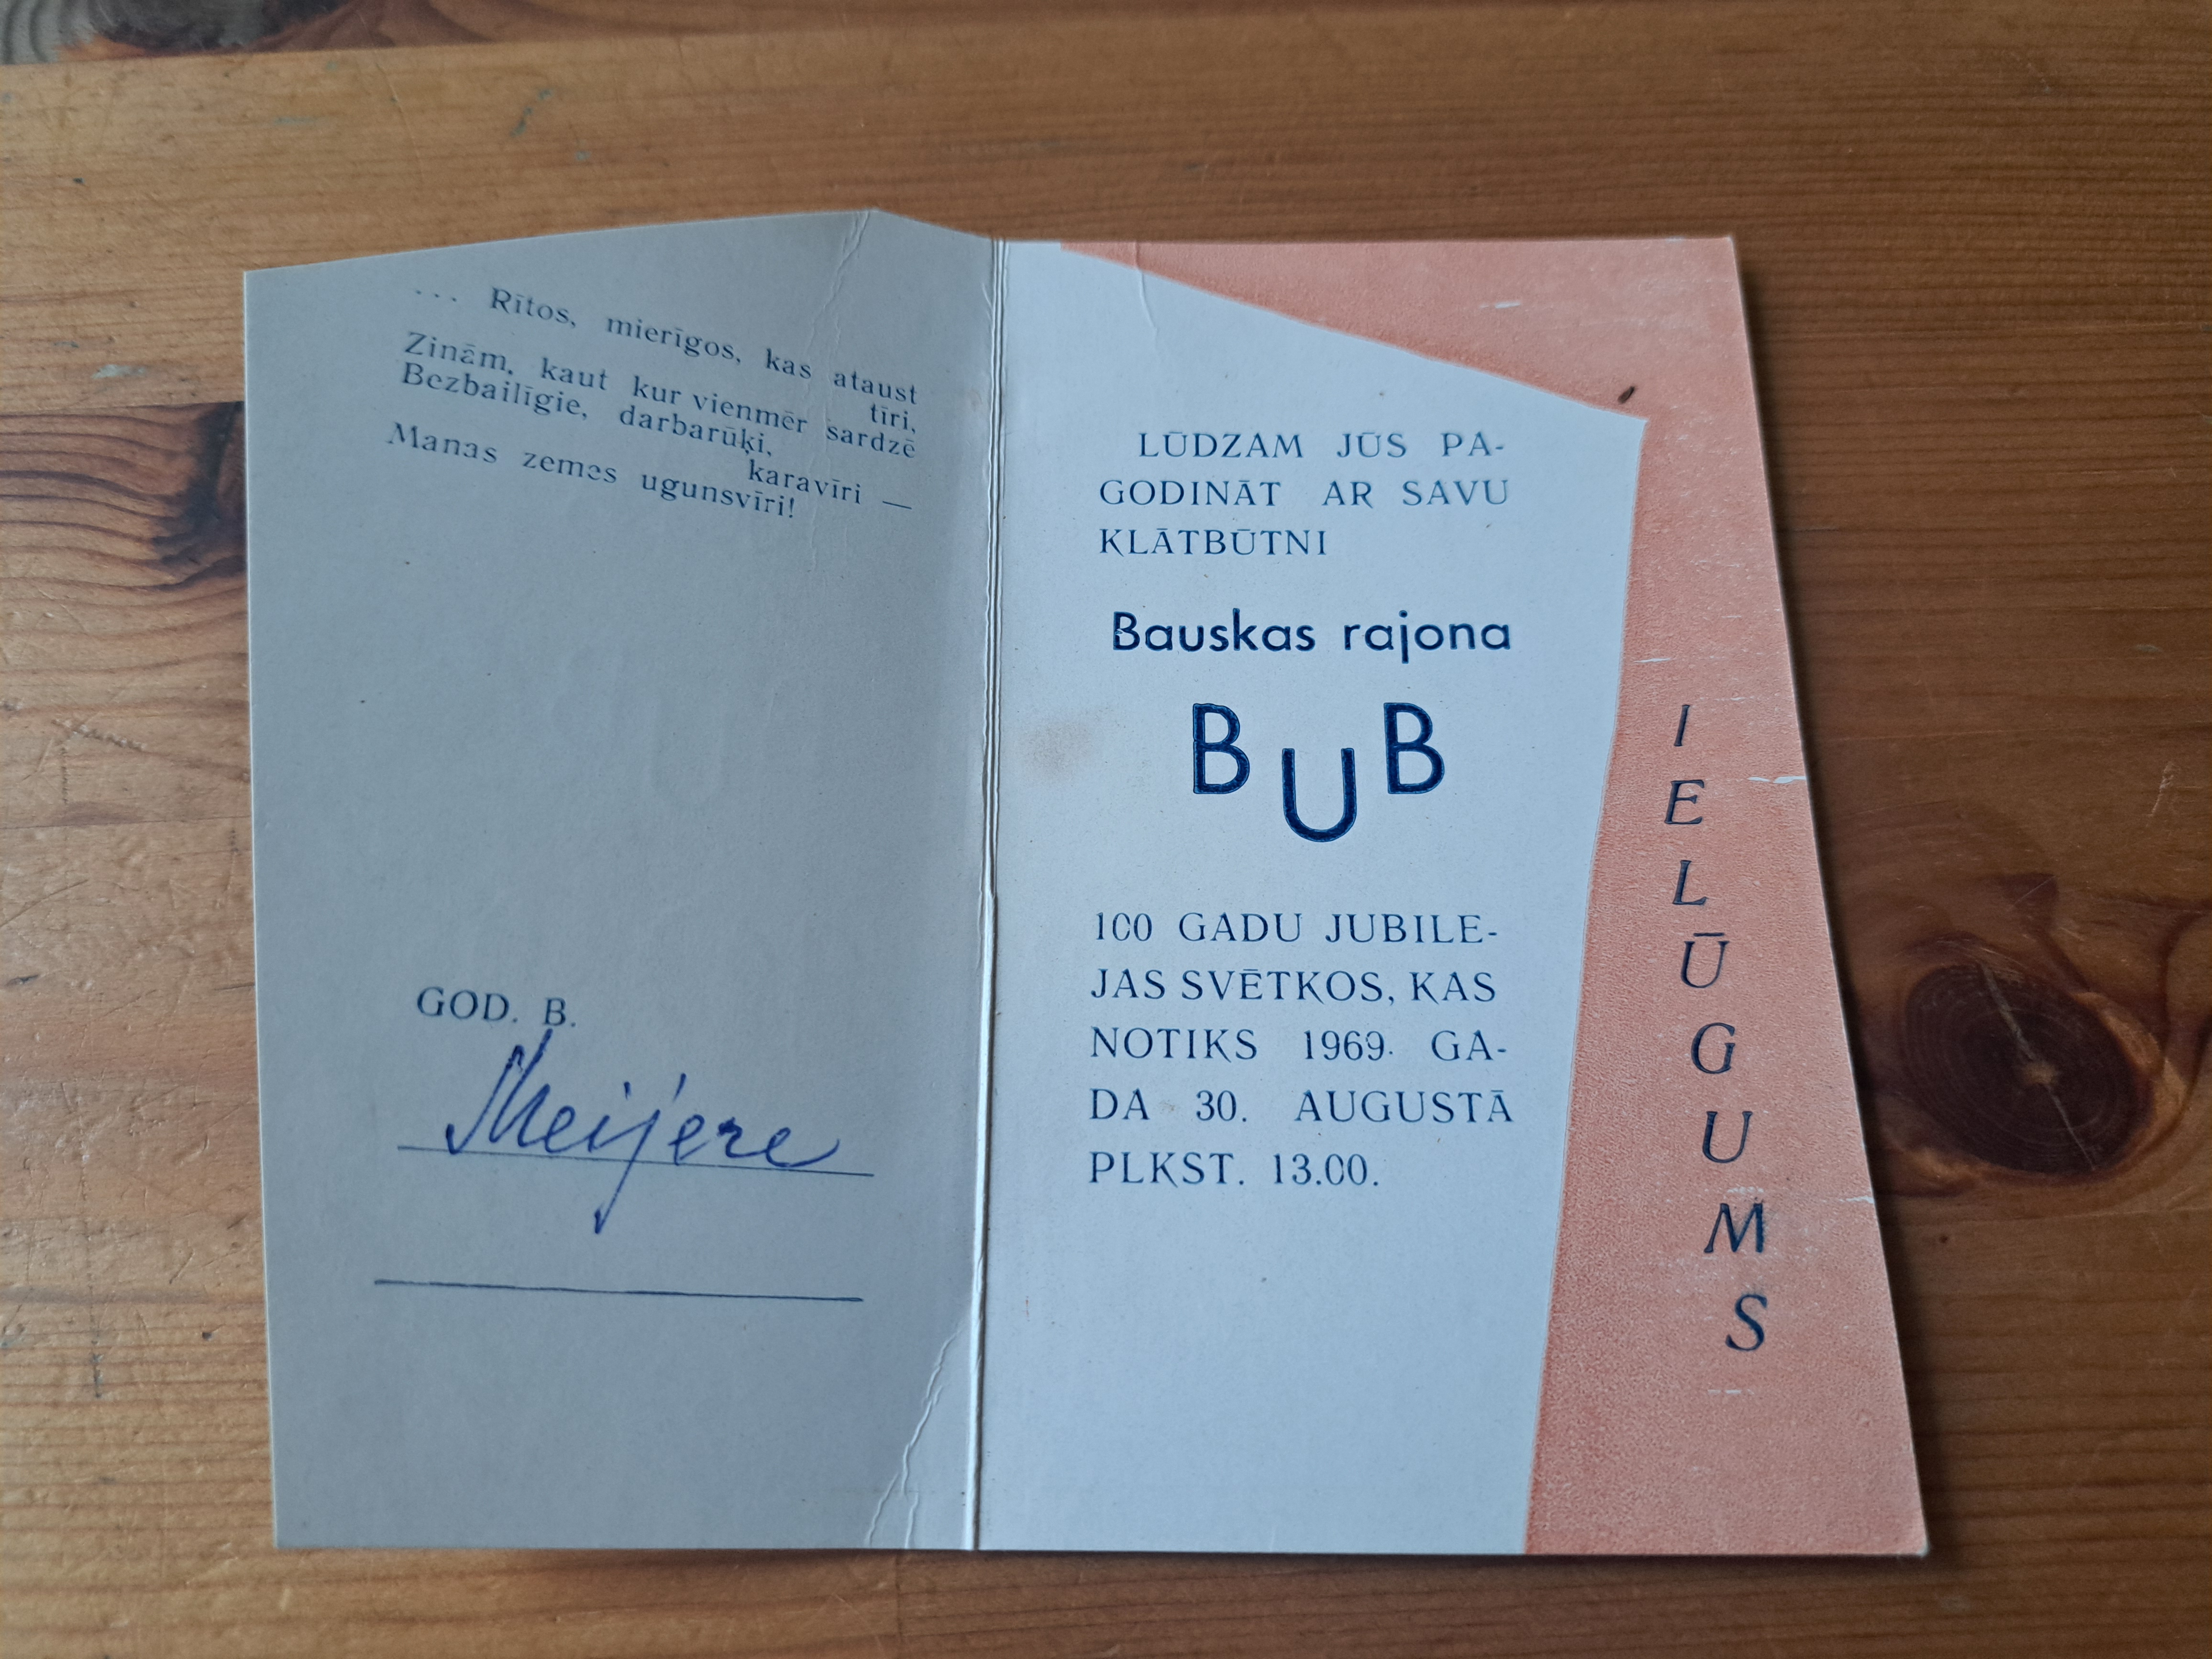 ... Rītos, mierīgos, kas ataust
tīri,
Zinām, kaut kur vienmēr sardzē
Bezbailīgie, darbarūķi,
karavīri —
Manas zemes ugunsvīri!
GOD. B.
Meijere
LŪDZAM JŪS PA-
GODINĀT AR SAVU
KLĀTBŪTNI
Bauskas rajona
BUB
100 GADU JUBILE-
JAS SVĒTKOS, KAS
NOTIKS 1969. GA-
DA 30. AUGUSTĀ
PLKST. 13.00.
IELŪGUMS